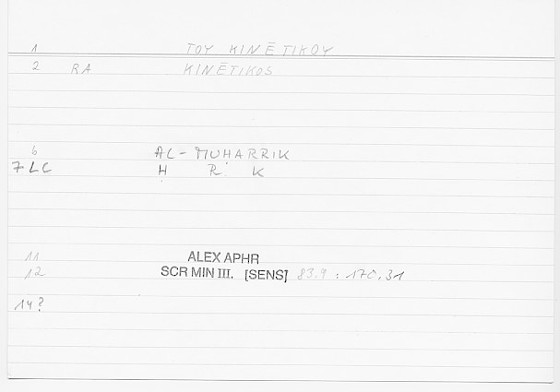 1 TOY KINĒTIKOY
2 RA KINĒTIKOS
6 AL-MUHARRIK
7 LC Ḥ R K
11 ALEX APHR
12 SCR MIN III. [SENS] 83.9 : 170.31
14?